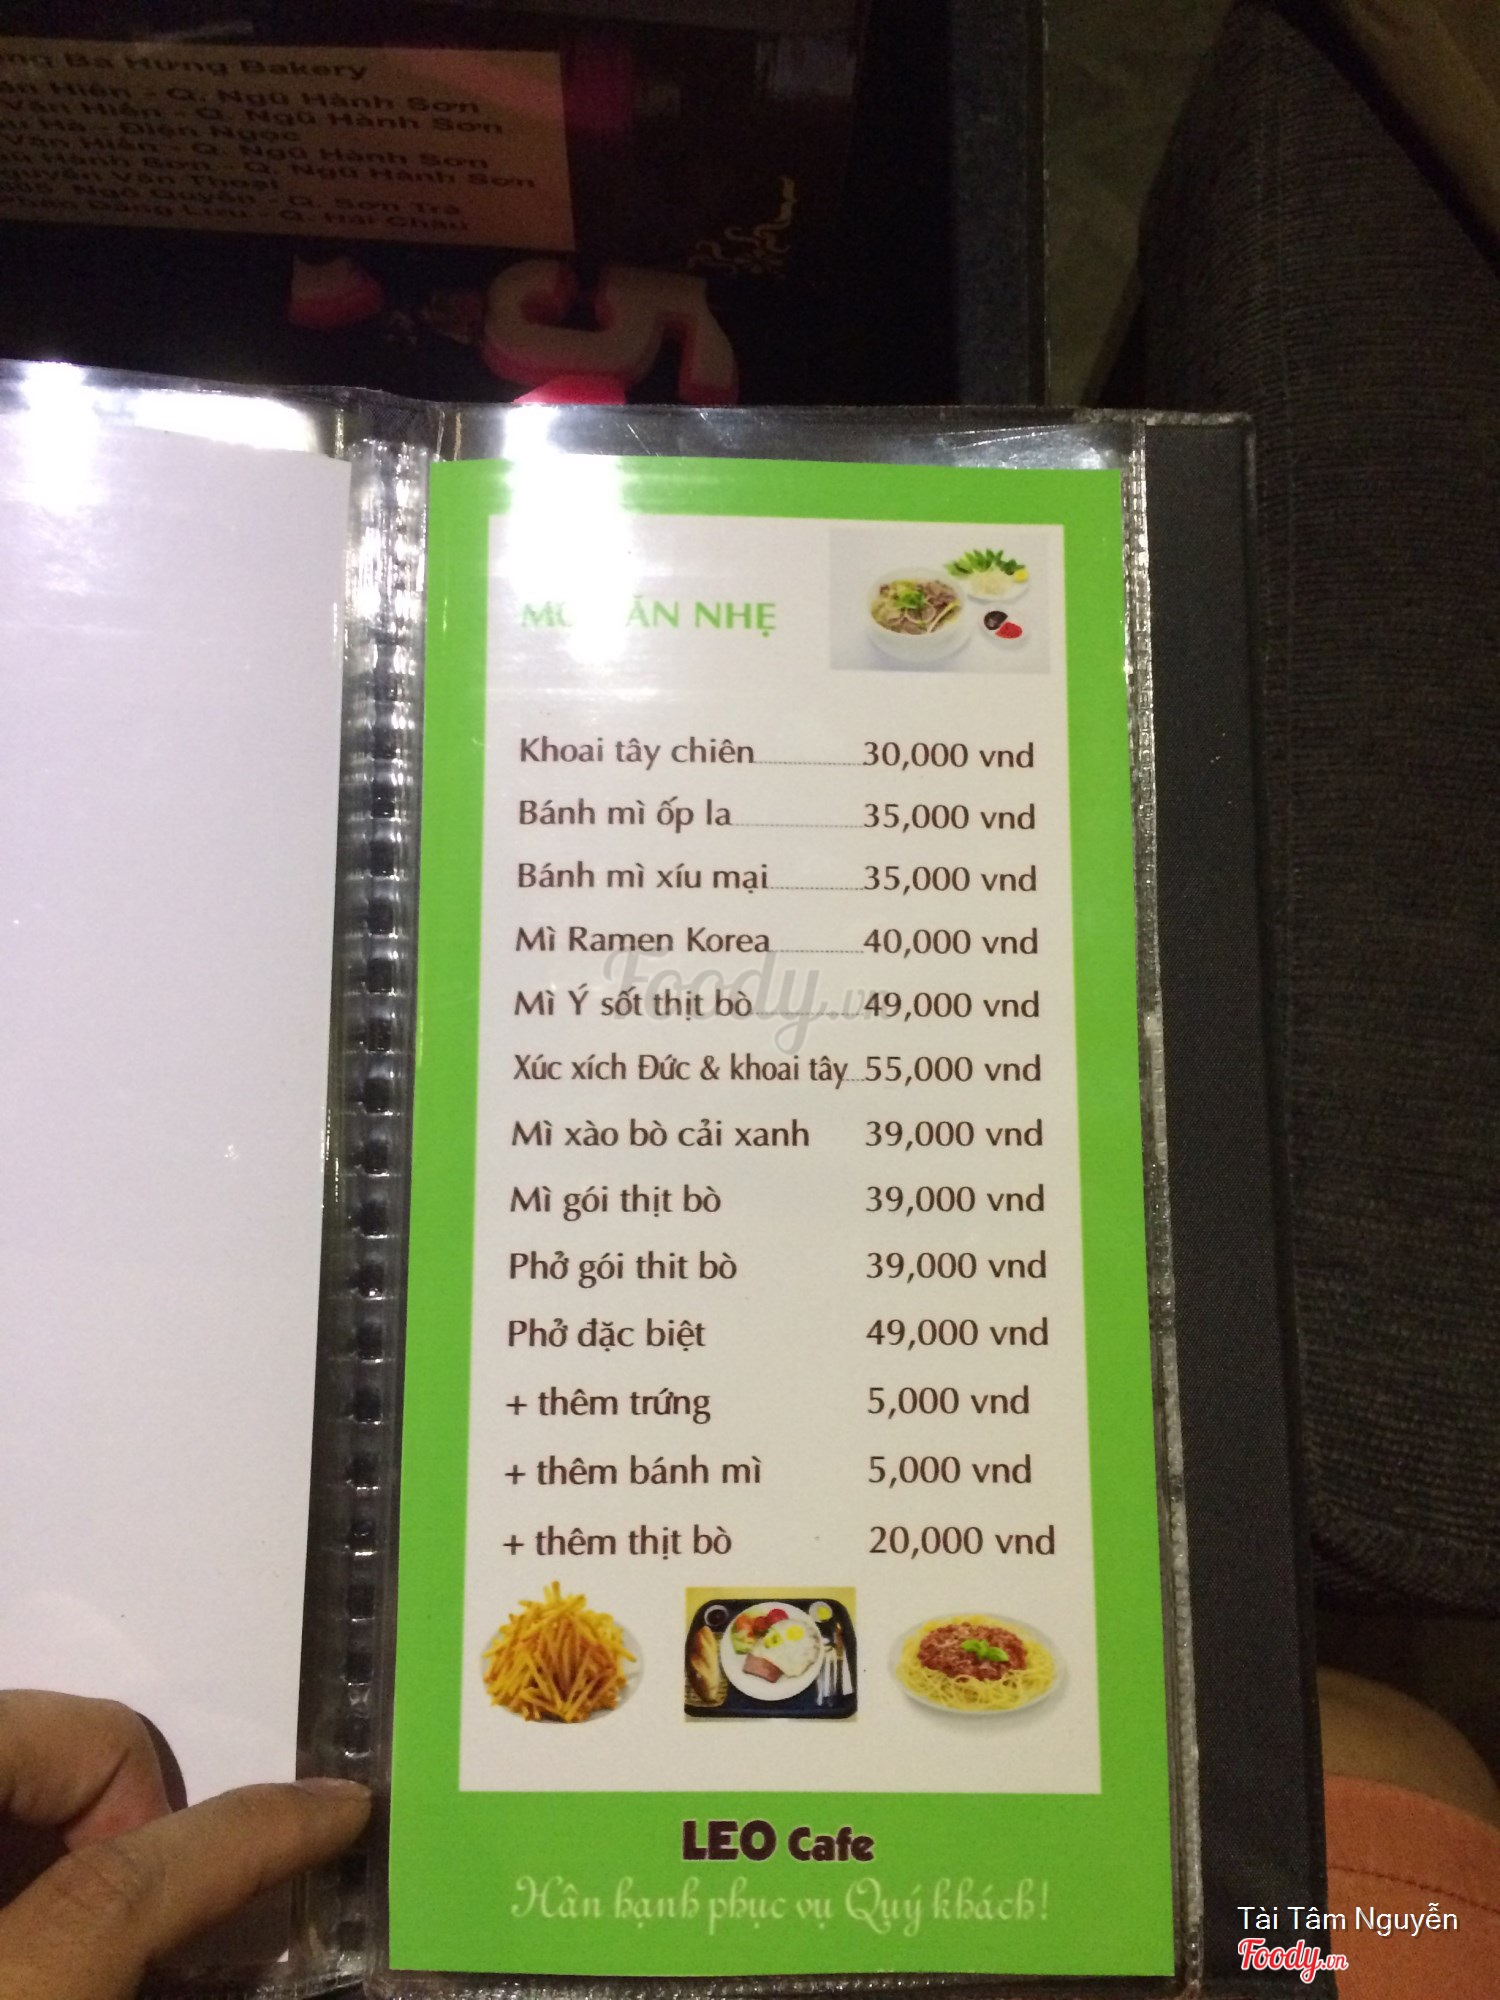 Ba Hưng Bakery
Hiền - Q. Ngũ Hành Sơn
Văn Hiến - Q. Ngũ Hành Sơn
Hà - Điện Ngọc
Văn Hiến - Q. Ngũ Hành Sơn
Hành Sơn - Q. Ngũ Hành Sơn
Nguyễn Văn Thoại
Ngô Quyền - Q. Sơn Trà
Phan Đăng Lưu - Q. Hải Châu
5
ĂN NHẸ
Khoai tây chiên 30,000 vnd
Bánh mì ốp la 35,000 vnd
Bánh mì xíu mại 35,000 vnd
Mì Ramen Korea 40,000 vnd
Mì Ý sốt thịt bò 49,000 vnd
Xúc xích Đức & khoai tây 55,000 vnd
Mì xào bò cải xanh 39,000 vnd
Mì gói thịt bò 39,000 vnd
Phở gói thit bò 39,000 vnd
Phở đặc biệt 49,000 vnd
+ thêm trứng 5,000 vnd
+ thêm bánh mì 5,000 vnd
+ thêm thịt bò 20,000 vnd
Foody.vn
LEO Cafe
Hân hạnh phục vụ Quý khách!
Tài Tâm Nguyễn
Foody.vn